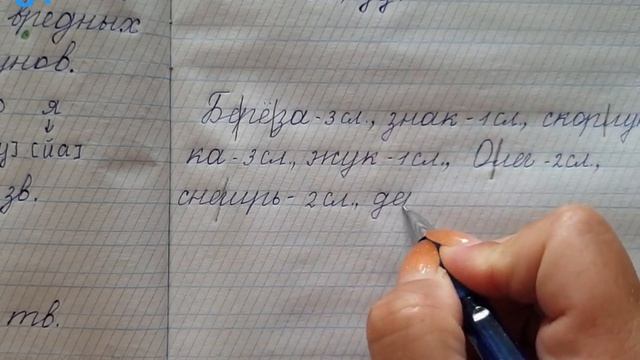 вредных
унов.
я
у] [йа]
зв.
тв.
Берёза - 3 сл., знак - 1 сл., скорлу
ка - 3 сл., жук - 1 сл., Олег - 2 сл.,
снегирь - 2 сл., де